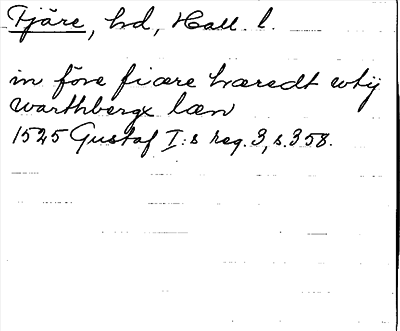 Fjäre, hd, Hall. l.
in före fiære hæredt whij
warthbergx læn
1525 Gustaf I:s reg. 3, s. 358.